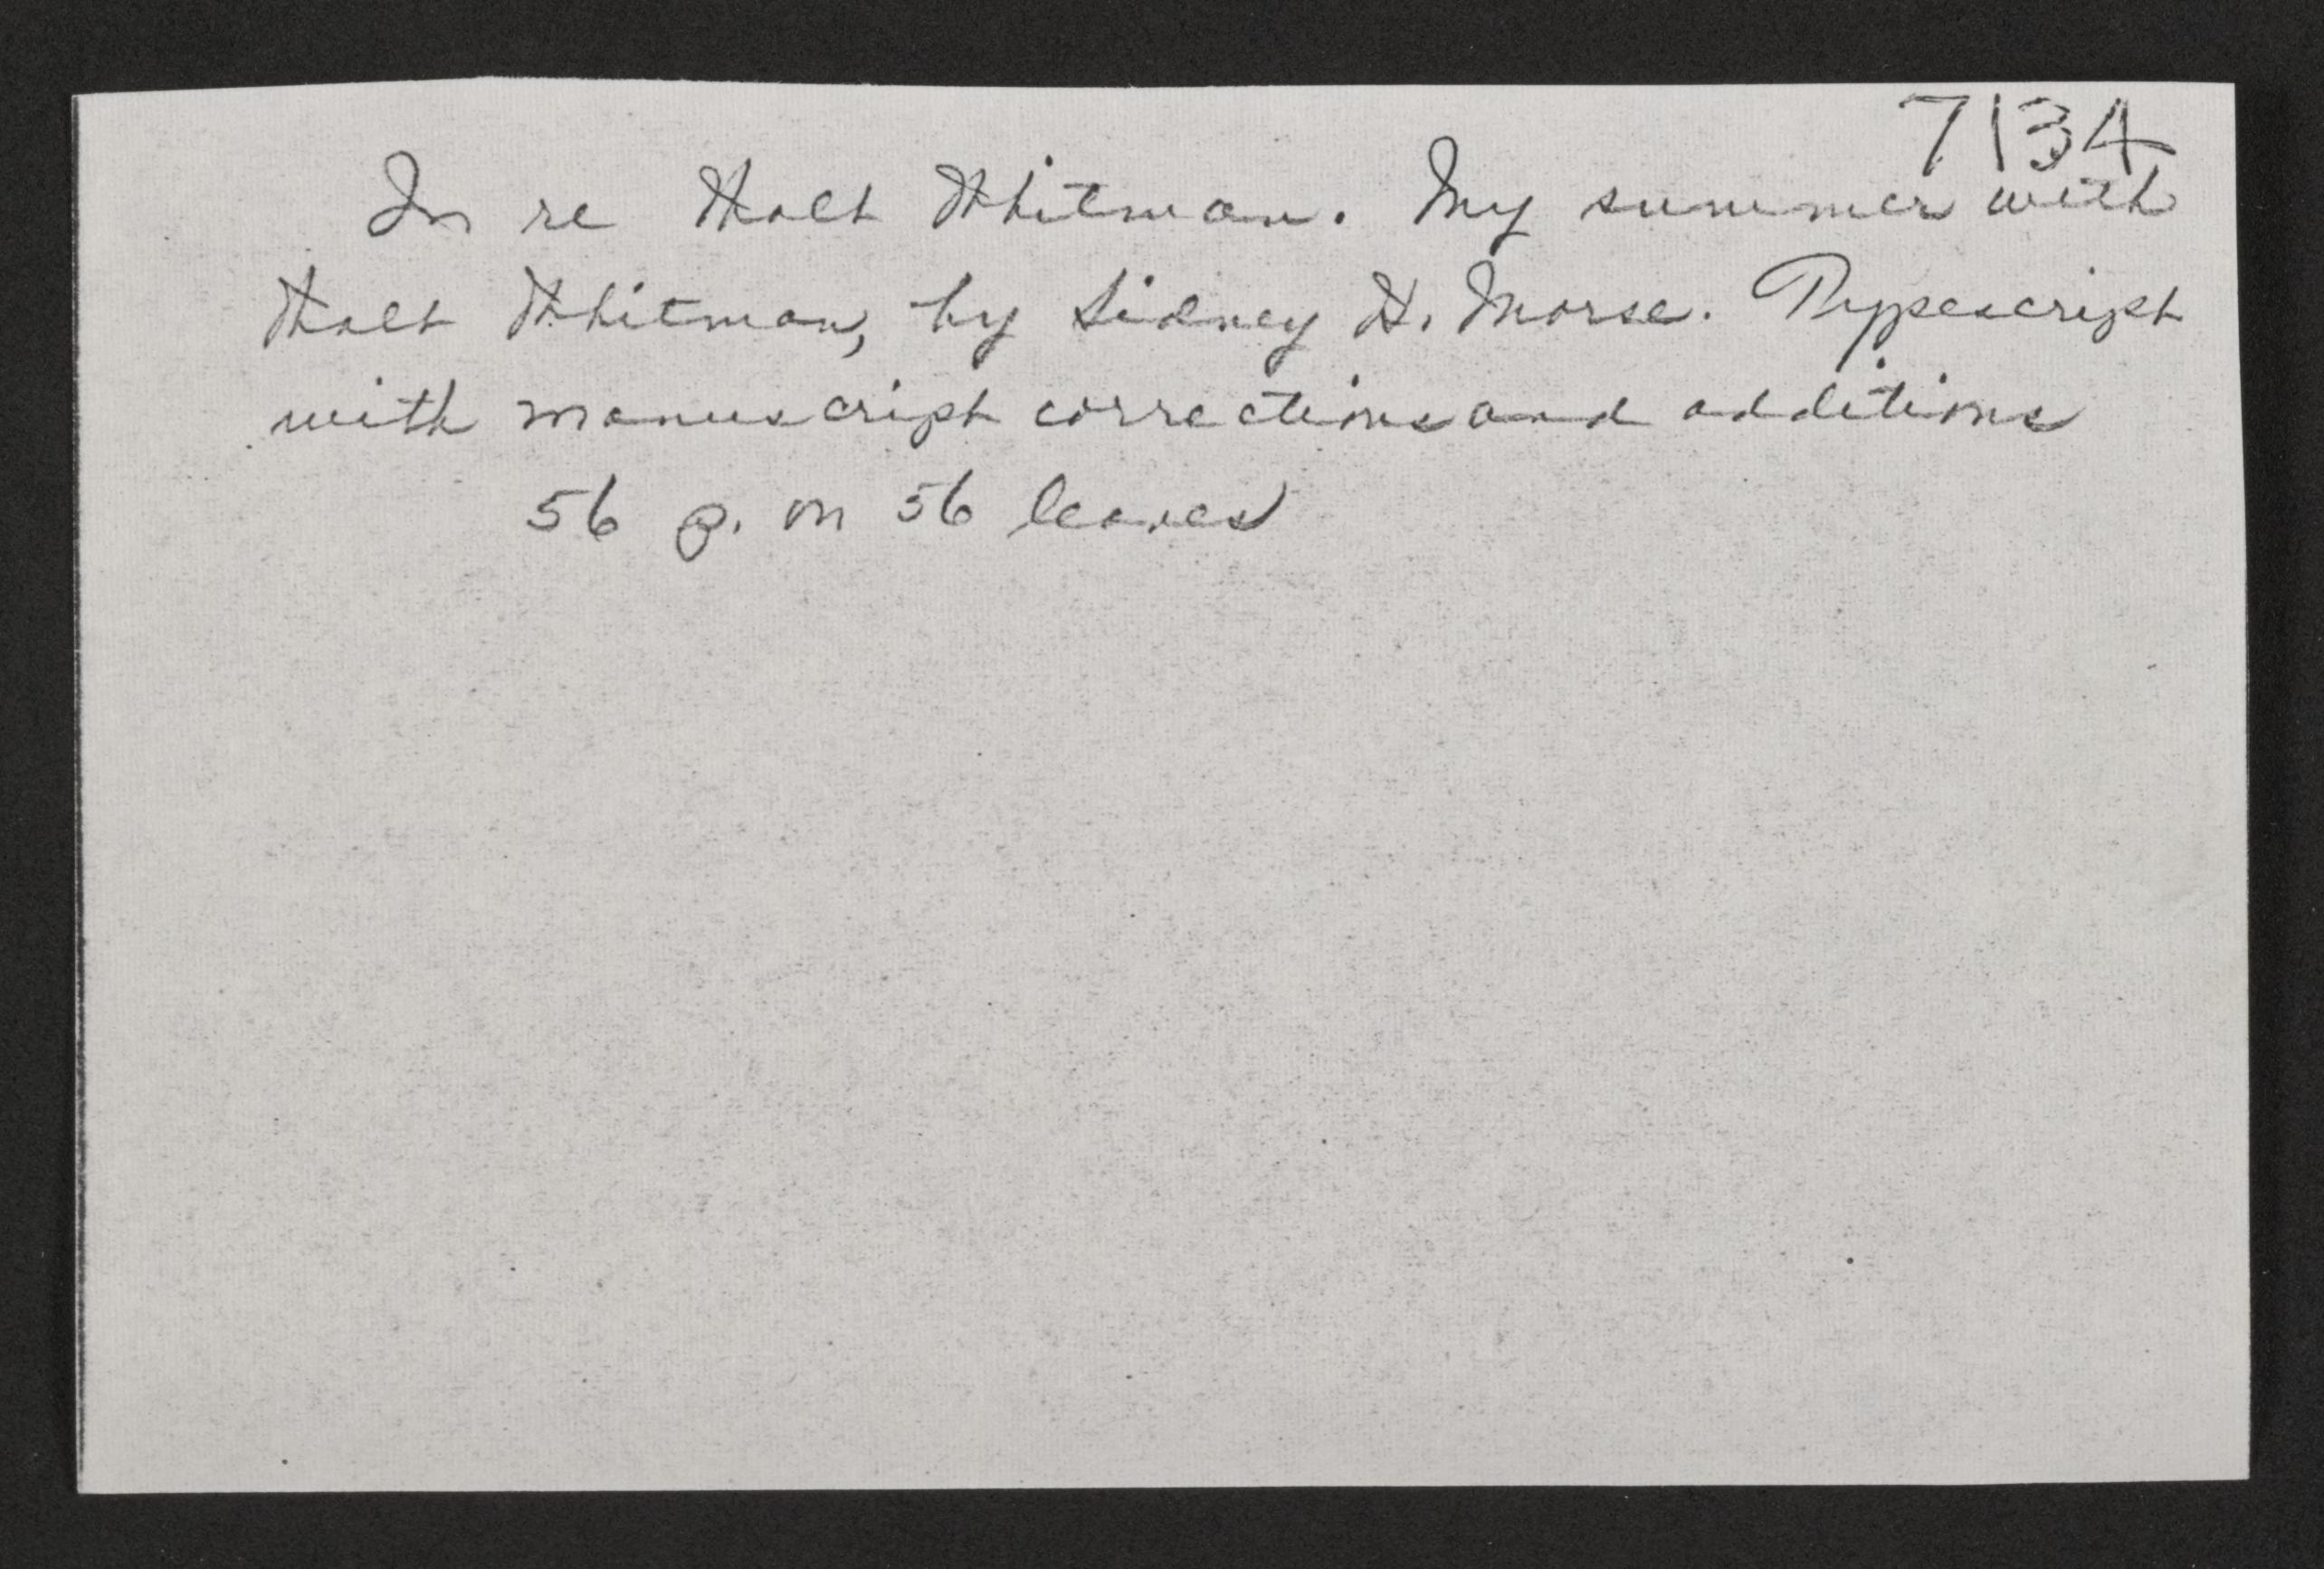 7134
In re Walt Whitman. My summer with
Walt Whitman, by Sidney H. Morse. Typescript
with manuscript corrections and additions
56 p. on 56 leaves